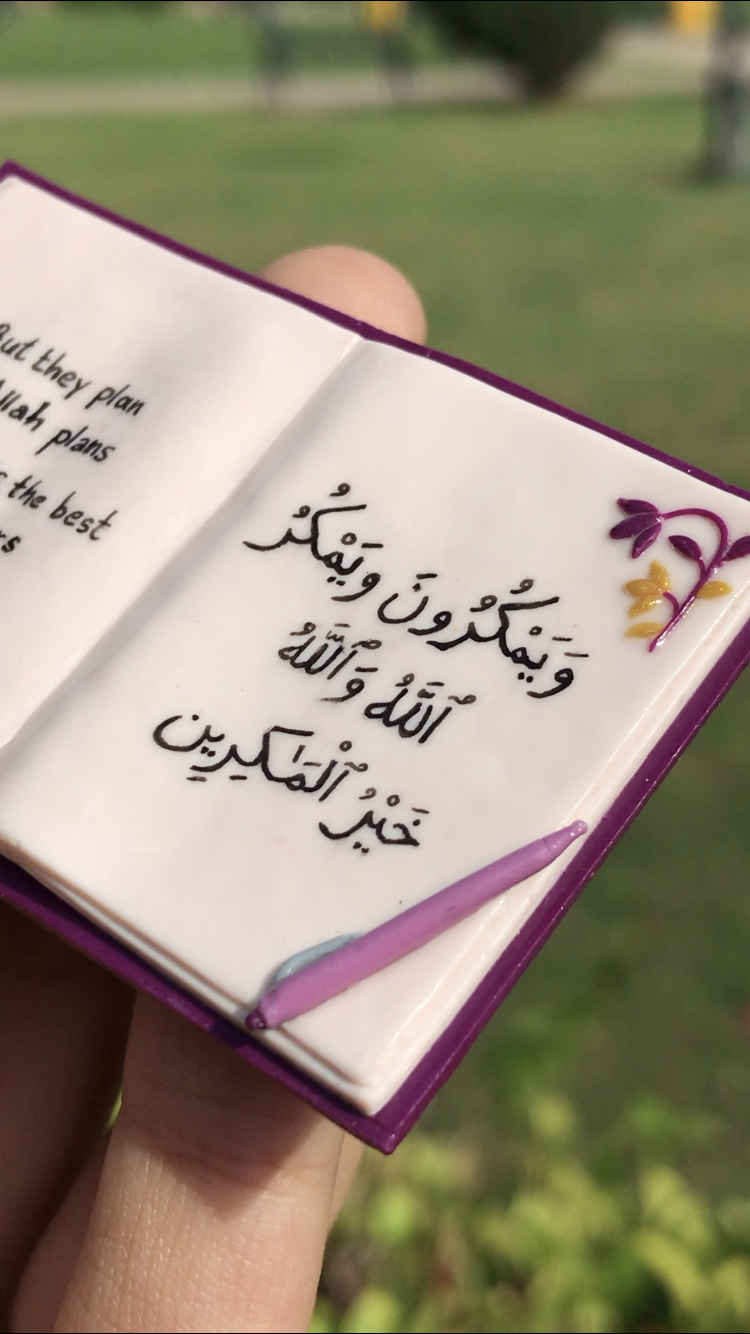 But they plan
Allah plans
the best
وَيَمْكُرُونَ وَيَمْكُرُ
ٱللَّهُ وَٱللَّهُ
خَيْرُ ٱلْمَـٰكِرِين